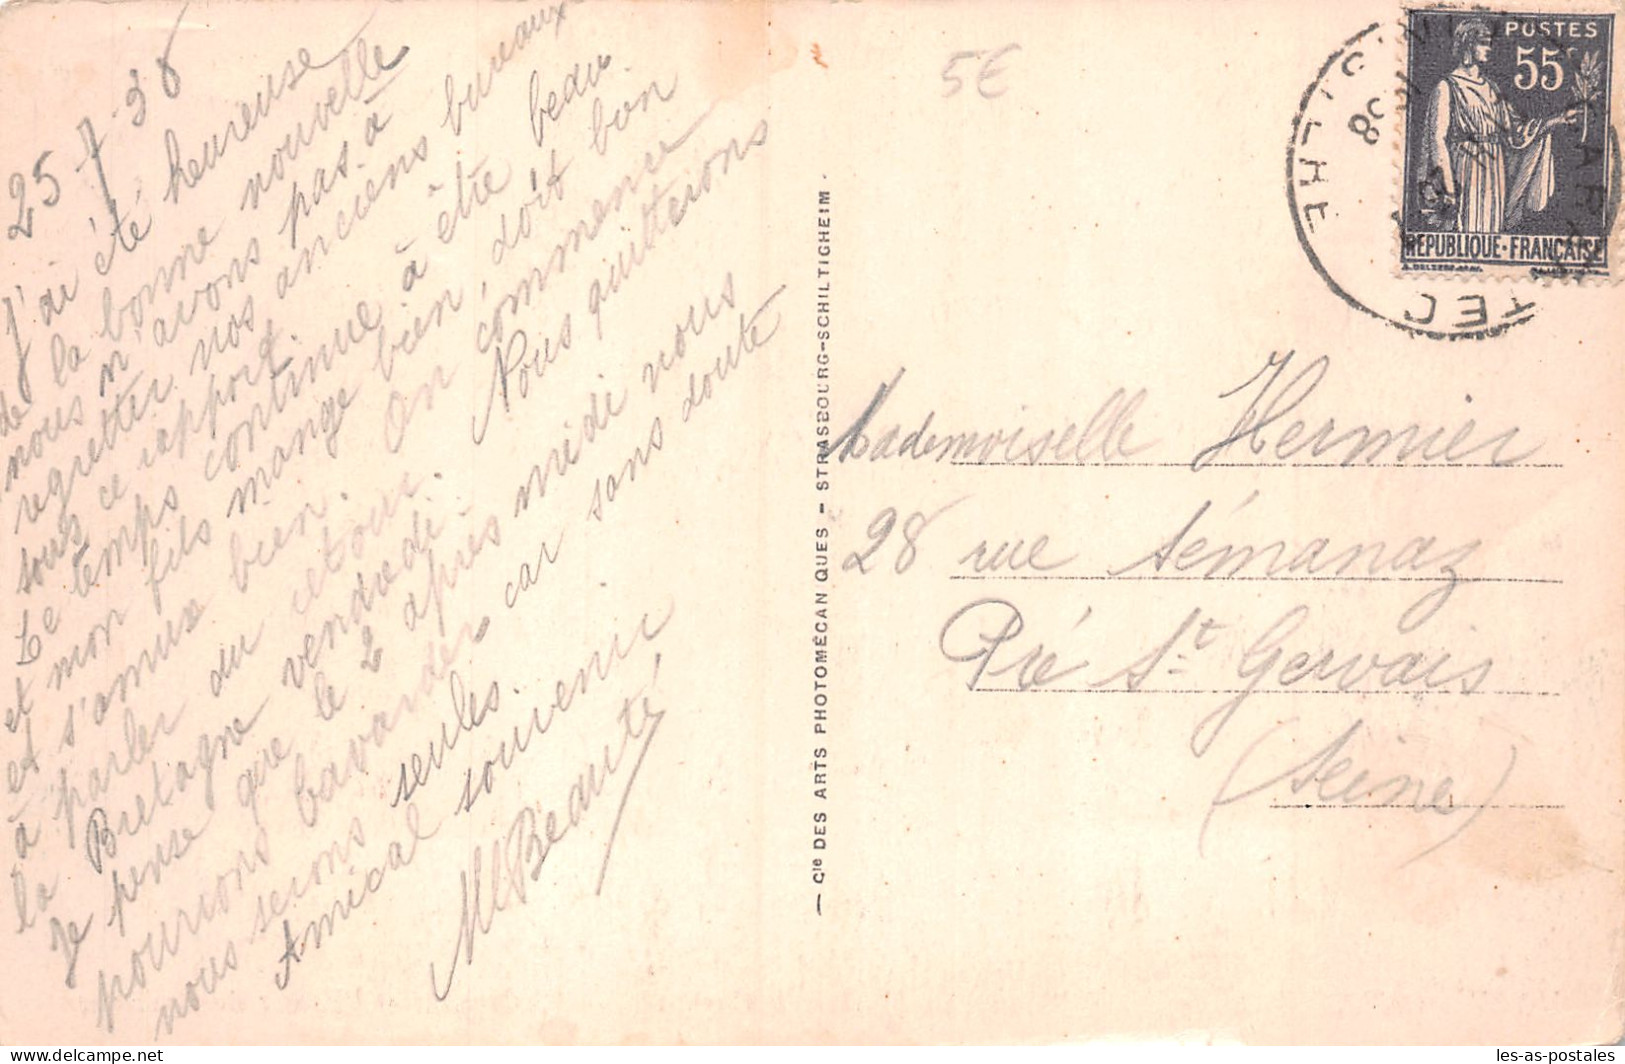 25-7-38
J'ai été heureuse
de la bonne nouvelle
nous n'avons pas à
regretter nos anciens bureaux
sous ce rapport.
Le temps continue à être beau
et mon fils mange bien, doit bon
et s'amuse bien. On commence
à parler du retour. Nous quitterons
la Bretagne vendredi.
Je pense que le 2 après midi nous
pourrons bavarder car sans doute
nous serons seules.
Amical souvenir
M Beauté
5€
Cie DES ARTS PHOTOMÉCANIQUES - STRASBOURG-SCHILTIGHEIM
POSTES
55c
REPUBLIQUE-FRANÇAISE
38
Mademoiselle Hermier
28 rue Sémanaz
Pré St Gervais
(Seine)
les-as-postales
delcampe.net